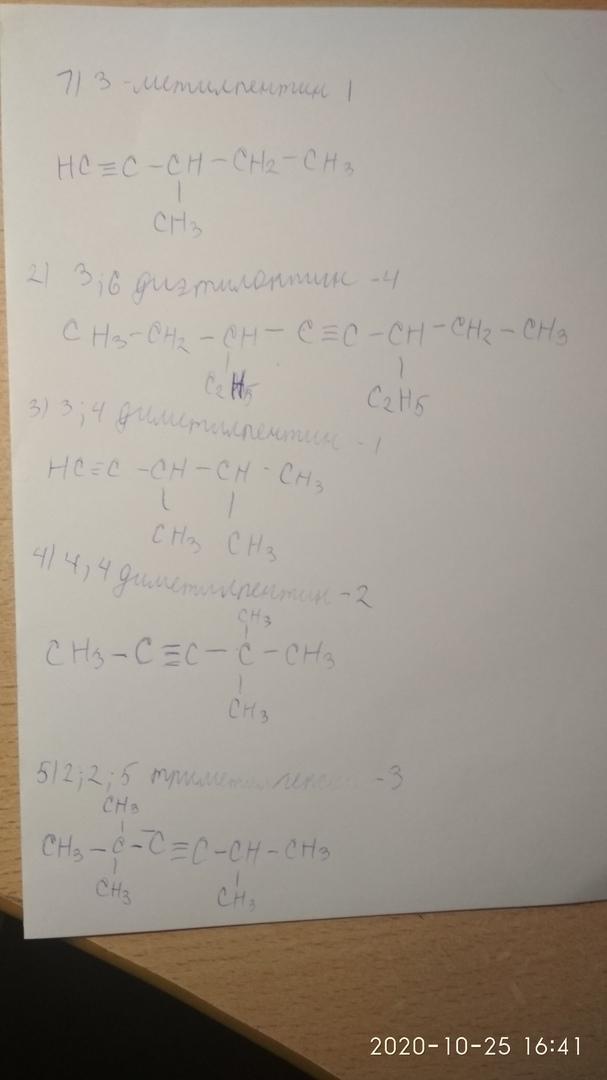 1) 3-метилпентин 1
HC≡C-CH-CH2-CH3
CH3
2) 3;6 диэтилоктин -4
CH3-CH2-CH-C≡C-CH-CH2-CH3
C2H5 C2H5
3) 3;4 диметилпентин -1
HC≡C-CH-CH-CH3
CH3 CH3
4) 4,4 диметилпентин -2
CH3
CH3-C≡C-C-CH3
CH3
5) 2;2;5 триметил -3
CH3
CH3-C-C≡C-CH-CH3
CH3 CH3
2020-10-25 16:41